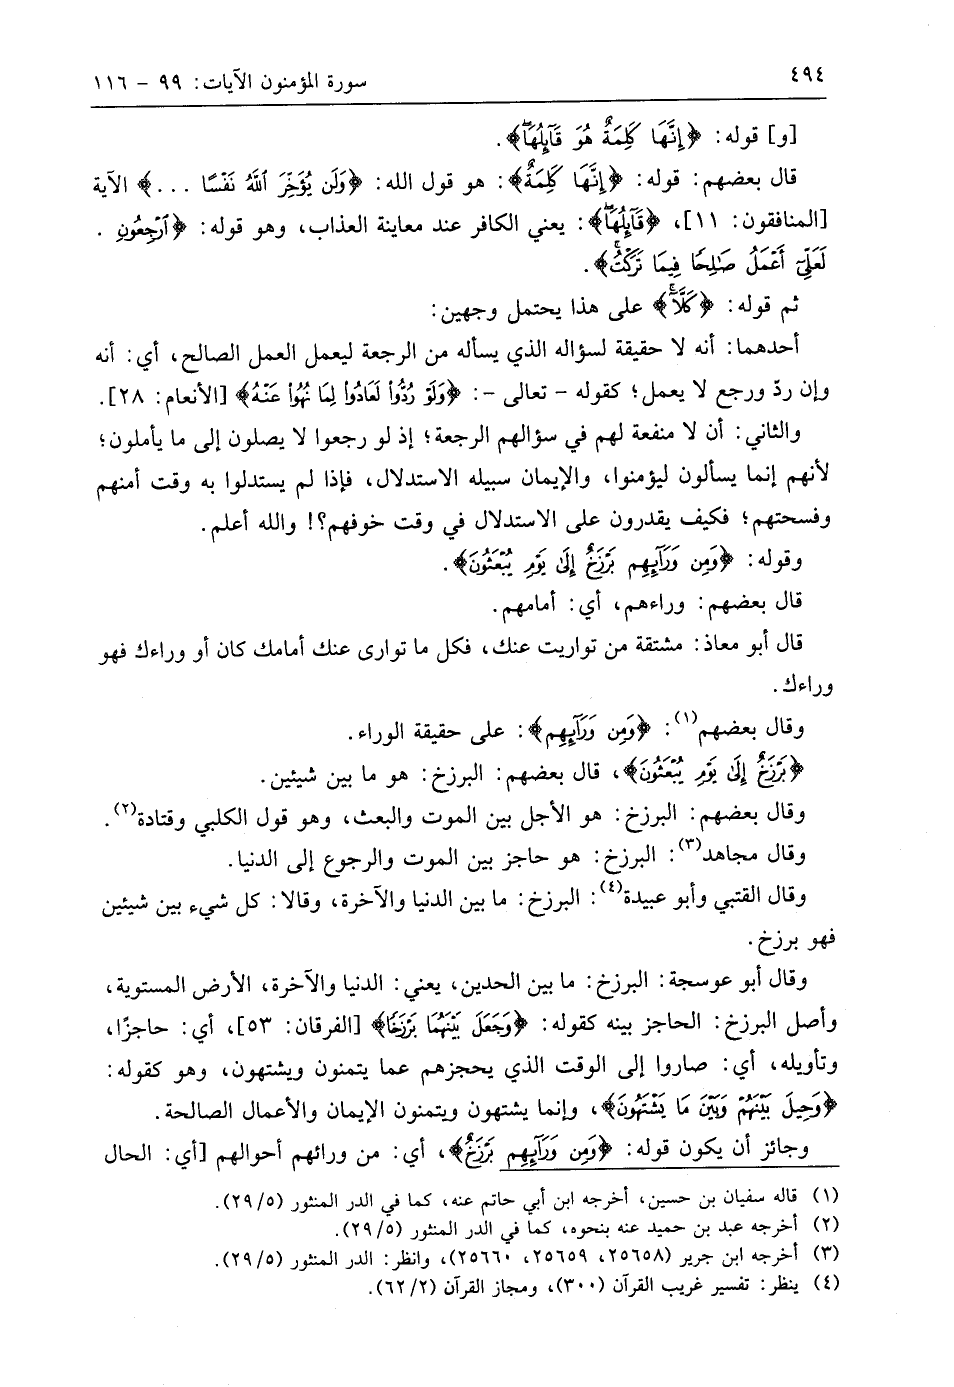 ٤٩٤
سورة المؤمنون الآيات: ٩٩ - ١١٦
[و] قوله: ﴿إِنَّهَا كَلِمَةٌ هُوَ قَآئِلُهَاۖ﴾.
قال بعضهم: قوله: ﴿إِنَّهَا كَلِمَةٌ﴾: هو قول الله: ﴿وَلَن يُؤَخِّرَ ٱللَّهُ نَفْسًا ...﴾ الآية
[المنافقون: ١١]، ﴿قَآئِلُهَاۖ﴾: يعني الكافر عند معاينة العذاب، وهو قوله: ﴿ٱرْجِعُونِ .
لَعَلِّيٓ أَعْمَلُ صَـٰلِحًا فِيمَا تَرَكْتُۚ﴾.
ثم قوله: ﴿كَلَّآۚ﴾ على هذا يحتمل وجهين:
أحدهما: أنه لا حقيقة لسؤاله الذي يسأله من الرجعة ليعمل العمل الصالح، أي: أنه
وإن ردّ ورجع لا يعمل؛ كقوله - تعالى -: ﴿وَلَوْ رُدُّوا۟ لَعَادُوا۟ لِمَا نُهُوا۟ عَنْهُ﴾ [الأنعام: ٢٨].
والثاني: أن لا منفعة لهم في سؤالهم الرجعة؛ إذ لو رجعوا لا يصلون إلى ما يأملون؛
لأنهم إنما يسألون ليؤمنوا، والإيمان سبيله الاستدلال، فإذا لم يستدلوا به وقت أمنهم
وفسحتهم؛ فكيف يقدرون على الاستدلال في وقت خوفهم؟! والله أعلم.
وقوله: ﴿وَمِن وَرَآئِهِم بَرْزَخٌ إِلَىٰ يَوْمِ يُبْعَثُونَ﴾.
قال بعضهم: وراءهم، أي: أمامهم.
قال أبو معاذ: مشتقة من تواريت عنك، فكل ما توارى عنك أمامك كان أو وراءك فهو
وراءك.
وقال بعضهم(١): ﴿وَمِن وَرَآئِهِم﴾: على حقيقة الوراء.
﴿بَرْزَخٌ إِلَىٰ يَوْمِ يُبْعَثُونَ﴾، قال بعضهم: البرزخ: هو ما بين شيئين.
وقال بعضهم: البرزخ: هو الأجل بين الموت والبعث، وهو قول الكلبي وقتادة(٢).
وقال مجاهد(٣): البرزخ: هو حاجز بين الموت والرجوع إلى الدنيا.
وقال القتبي وأبو عبيدة(٤): البرزخ: ما بين الدنيا والآخرة، وقالا: كل شيء بين شيئين
فهو برزخ.
وقال أبو عوسجة: البرزخ: ما بين الحدين، يعني: الدنيا والآخرة، الأرض المستوية،
وأصل البرزخ: الحاجز بينه كقوله: ﴿وَجَعَلَ بَيْنَهُمَا بَرْزَخًا﴾ [الفرقان: ٥٣]، أي: حاجزًا،
وتأويله، أي: صاروا إلى الوقت الذي يحجزهم عما يتمنون ويشتهون، وهو كقوله:
﴿وَحِيلَ بَيْنَهُمْ وَبَيْنَ مَا يَشْتَهُونَ﴾، وإنما يشتهون ويتمنون الإيمان والأعمال الصالحة.
وجائز أن يكون قوله: ﴿وَمِن وَرَآئِهِم بَرْزَخٌ﴾، أي: من ورائهم أحوالهم [أي: الحال
(١) قاله سفيان بن حسين، أخرجه ابن أبي حاتم عنه، كما في الدر المنثور (٢٩/٥).
(٢) أخرجه عبد بن حميد عنه بنحوه، كما في الدر المنثور (٢٩/٥).
(٣) أخرجه ابن جرير (٢٥٦٥٨، ٢٥٦٥٩، ٢٥٦٦٠)، وانظر: الدر المنثور (٢٩/٥).
(٤) ينظر: تفسير غريب القرآن (٣٠٠)، ومجاز القرآن (٦٢/٢).